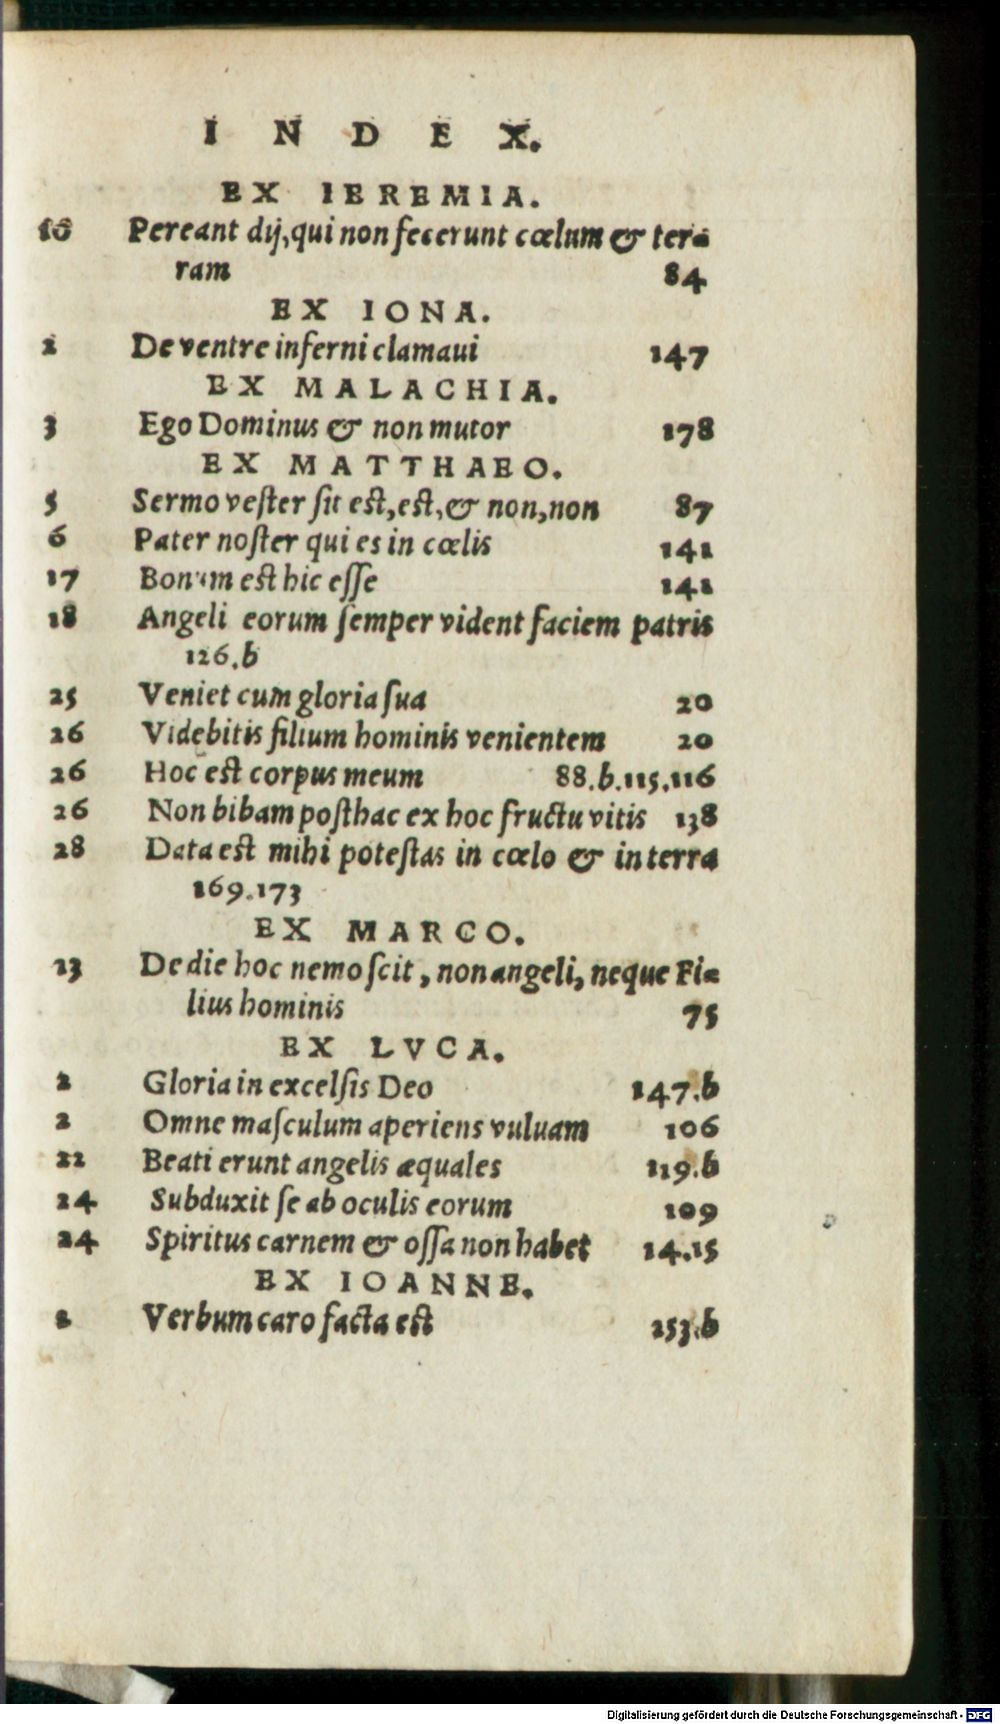 INDEX.
EX IEREMIA.
10 Pereant dij, qui non fecerunt cœlum & ter-
ram 84
EX IONA.
2 De ventre inferni clamaui 147
EX MALACHIA.
3 Ego Dominus & non mutor 178
EX MATTHAEO.
5 Sermo vester sit est, est, & non, non 87
6 Pater noster qui es in cœlis 141
17 Bonum est hic esse 141
18 Angeli eorum semper vident faciem patris
126.b
25 Veniet cum gloria sua 20
26 Videbitis filium hominis venientem 20
26 Hoc est corpus meum 88.b.115.116
26 Non bibam posthac ex hoc fructu vitis 138
28 Data est mihi potestas in cœlo & in terra
169.173
EX MARCO.
13 De die hoc nemo scit, non angeli, neque Fi-
lius hominis 75
EX LVCA.
2 Gloria in excelsis Deo 147.b
2 Omne masculum aperiens vuluam 106
22 Beati erunt angelis æquales 119.b
24 Subduxit se ab oculis eorum 109
24 Spiritus carnem & ossa non habet 14.15
EX IOANNE.
Verbum caro facta est 253.b
Digitalisierung gefördert durch die Deutsche Forschungsgemeinschaft - DFG